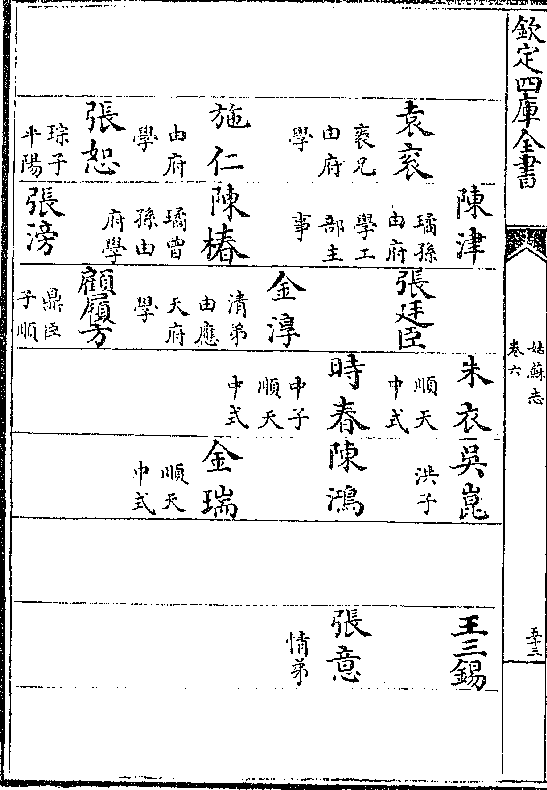 欽定四庫全書
姑蘇志
卷六
五十三
袁衮
褎兄
由府
學
施仁
由府
學
張恕
琮子
平陽
陳津
璚孫
由府
學工
部主
事
陳椿
璚曾
孫由
府學
張滂
張廷臣
金淳
清弟
由應
天府
學
顧履方
鼎臣
子順
朱衣
順天
中式
時春
中子
順天
中式
吳崑
洪子
陳鴻
金瑞
順天
中式
王三錫
張意
情弟